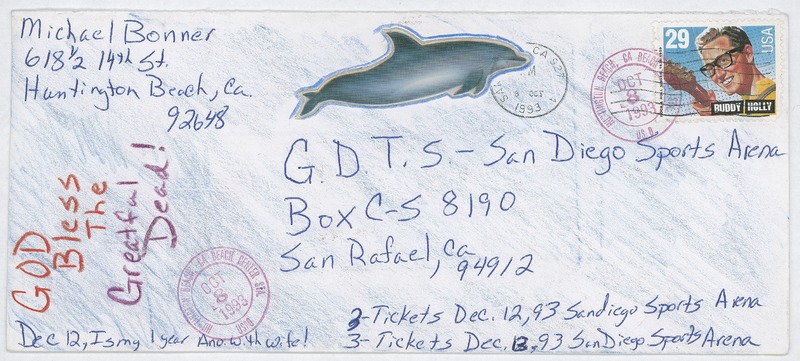 Michael Bonner
618½ 14th St.
Huntington Beach, Ca.
92648
CA 927
8 OCT
1993
29
USA
BUDDY HOLLY
HUNTINGTON BEACH, CA BEACH CENTER STA.
OCT
8
1993
USPO
G.D.T.S - San Diego Sports Arena
Box C-S 8190
San Rafael, Ca
94912
GOD
Bless
The
Greatful
Dead!
HUNTINGTON BEACH, CA BEACH CENTER STA.
OCT
8
1993
USPO
2-Tickets Dec. 12,93 Sandiego Sports Arena
3-Tickets Dec. 13,93 San Diego Sports Arena
Dec 12, Is my 1 year Ano. with wife!